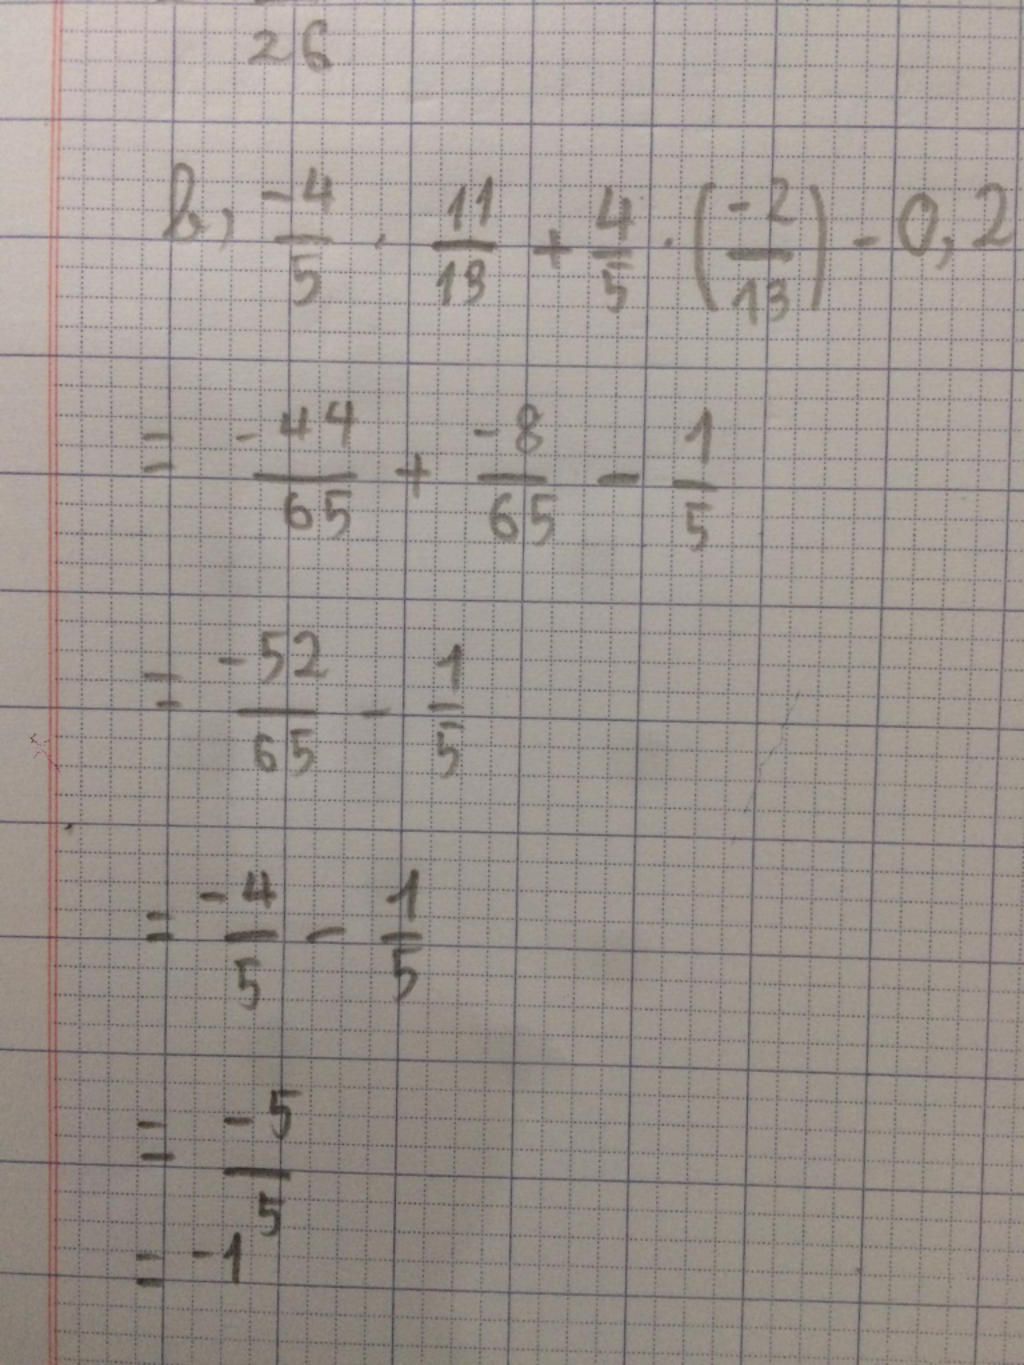 26
b, -4/5 . 11/13 + 4/5 . (-2/13) - 0,2
= -44/65 + -8/65 - 1/5
= -52/65 - 1/5
= -4/5 - 1/5
= -5/5
= -1